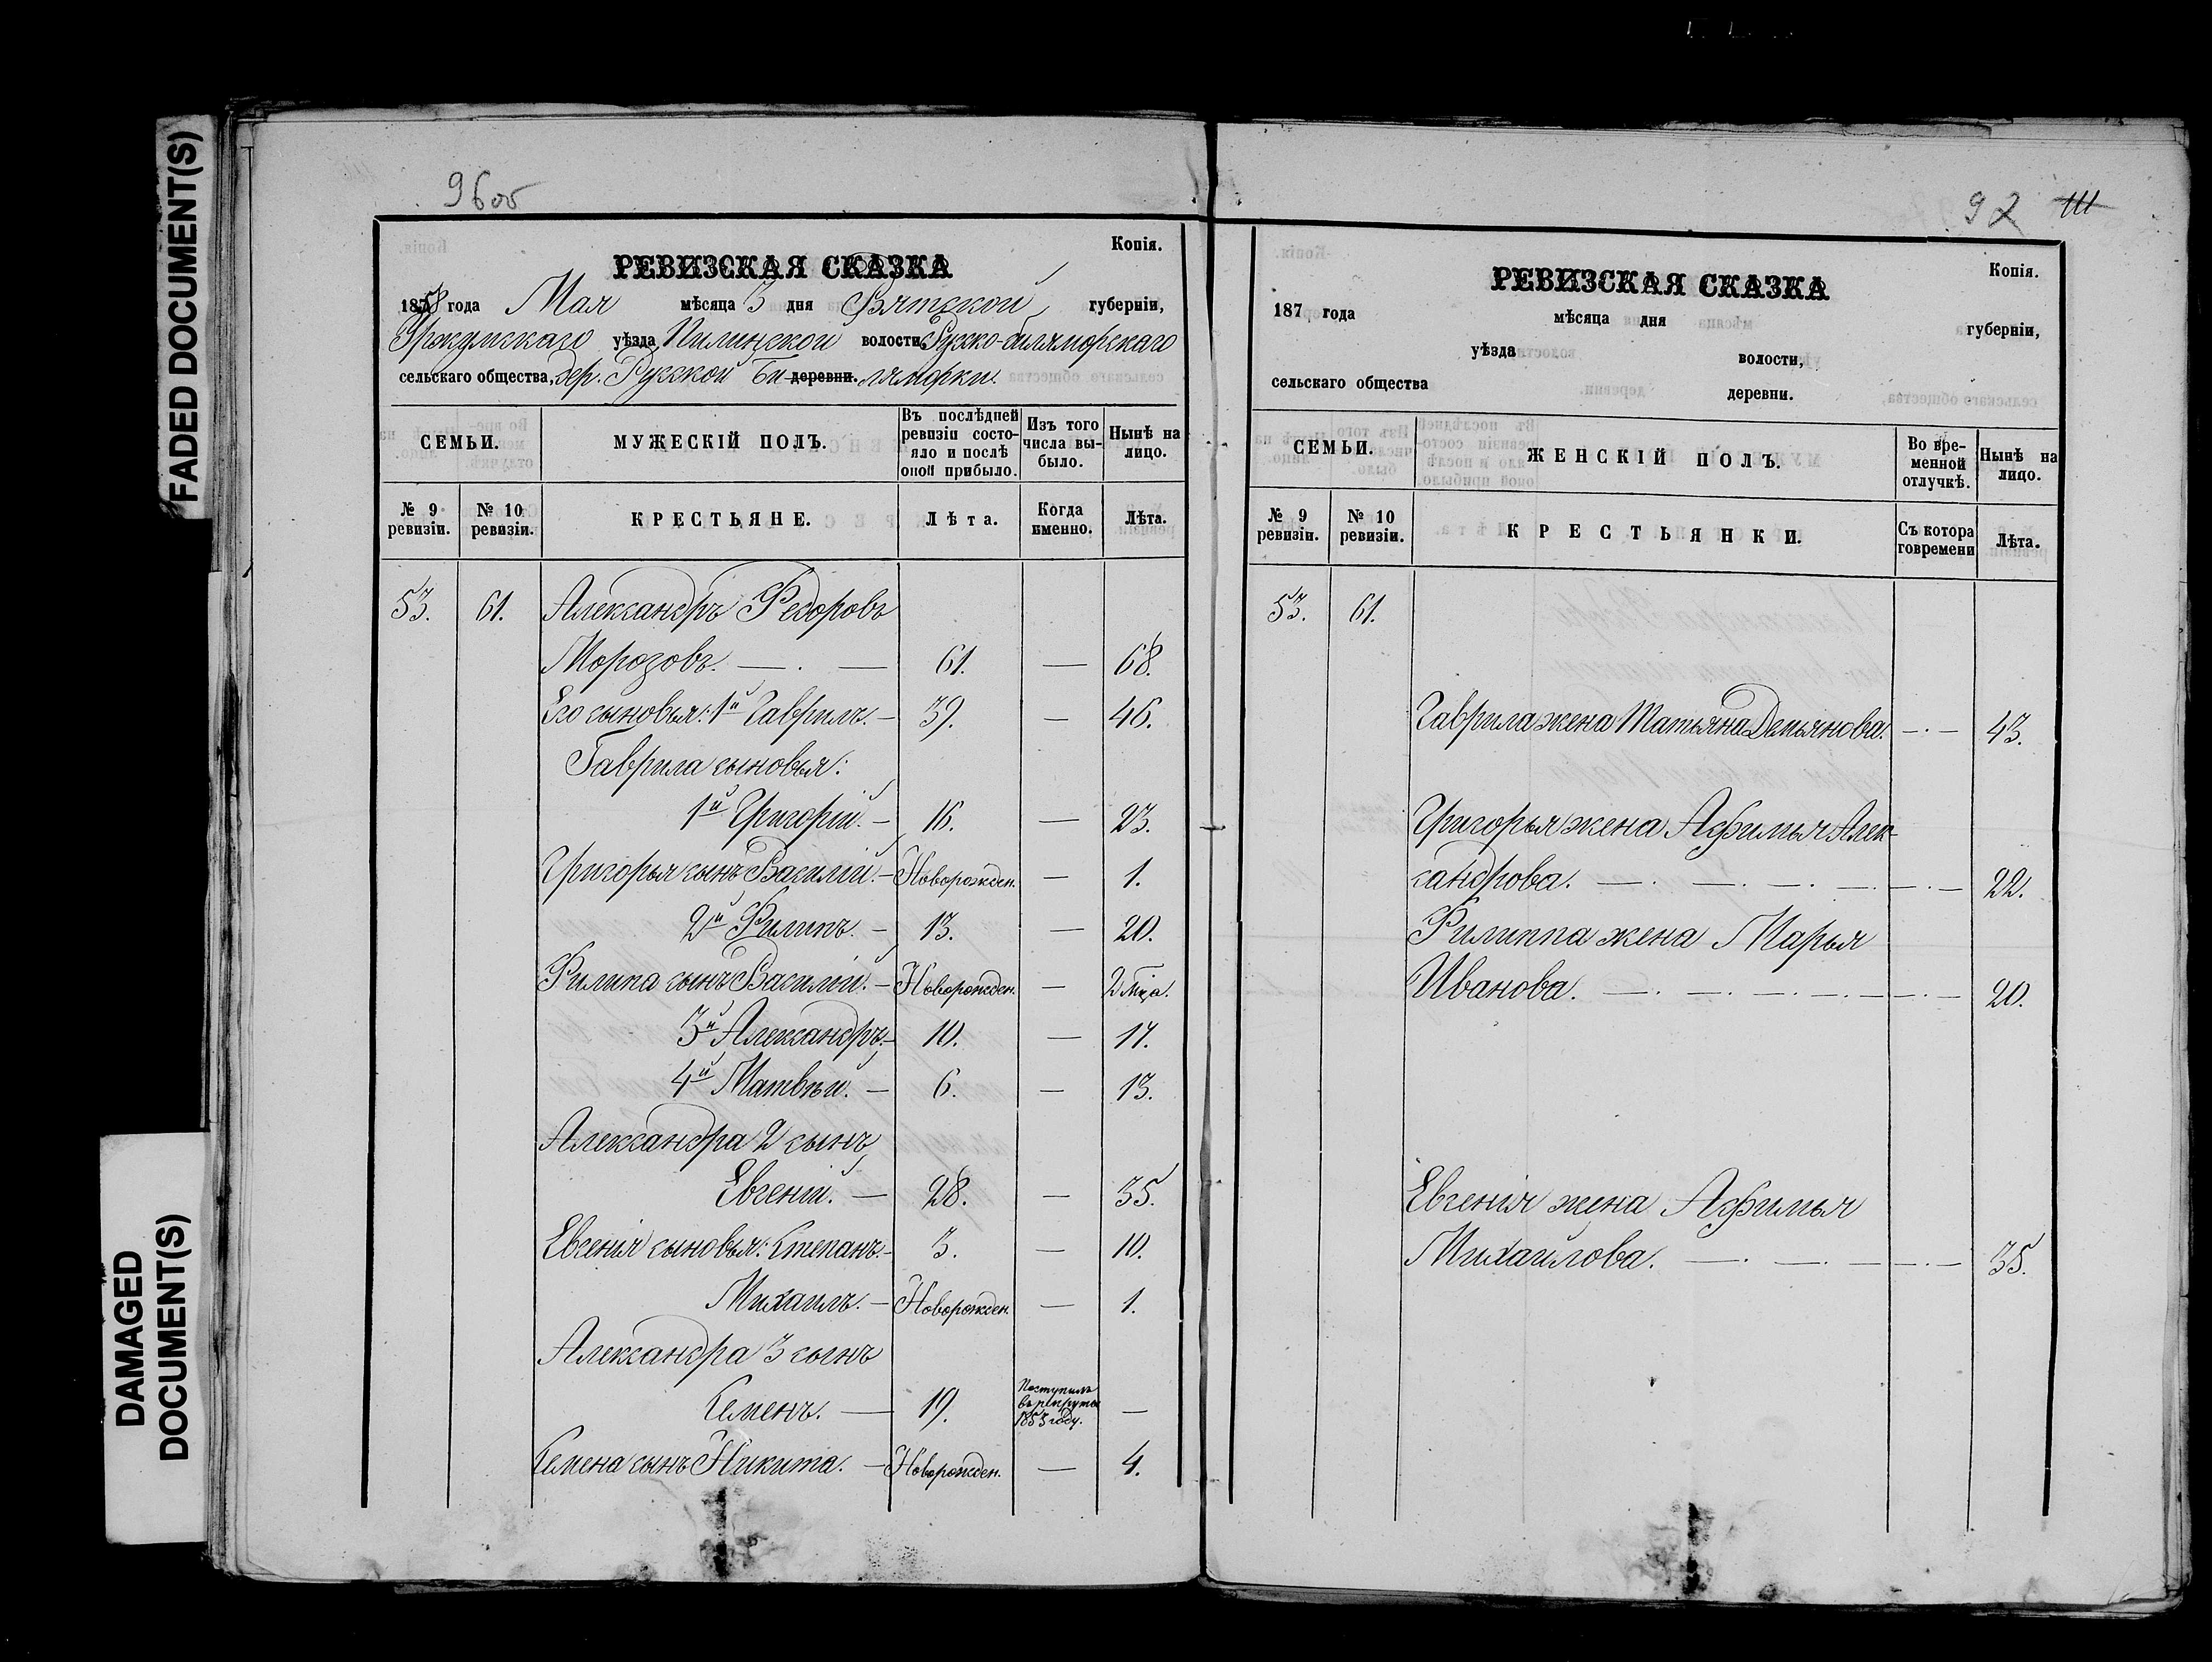 FADED DOCUMENT(S)
DAMAGED
DOCUMENT(S)
96об
Копія.
РЕВИЗСКАЯ СКАЗКА
1858 года Мая мѣсяца 3 дня Вятской губерніи,
Уржумскаго уѣзда Пилинской волости, Русско-билляморскаго
сельскаго общества, дер. Русской Би деревни. ляморки.
СЕМЬИ. МУЖЕСКІЙ ПОЛЪ. Въ послѣдней ревизіи состояло и послѣ оной прибыло. Изъ того числа выбыло. Нынѣ на лицо.
№ 9 ревизіи. № 10 ревизіи. КРЕСТЬЯНЕ. Лѣта. Когда именно. Лѣта.
53. 61. Александръ Федоровъ
Морозовъ. — . — 61. — 68.
Его сыновья: 1й Гаврилъ. — 39. — 46.
Гаврила сыновья:
1й Григорій. — 16. — 23.
Григорья сынъ Василій. — Новорожден. — 1.
2й Филипъ. — 13. — 20.
Филипа сынъ Василій. — Новорожден. — 2 мца.
3й Александръ. — 10. — 17.
4й Матвѣй. — 6. — 13.
Александра 2 сынъ
Евгеній. — 28. — 35.
Евгенія сыновья: Степанъ. — 3. — 10.
Михаилъ. — Новорожден. — 1.
Александра 3 сынъ
Семенъ. — 19. Поступилъ въ рекруты 1853 году. —
Семена сынъ Никита. — Новорожден. — 4.
92 111
Копія.
РЕВИЗСКАЯ СКАЗКА
187 года мѣсяца дня губерніи,
уѣзда волости,
сельскаго общества деревни.
СЕМЬИ. ЖЕНСКІЙ ПОЛЪ. Во временной отлучкѣ. Нынѣ на лицо.
№ 9 ревизіи. № 10 ревизіи. КРЕСТЬЯНКИ. Съ котораго времени Лѣта.
53. 61.
Гаврила жена Татьяна Демьянова. — . — 43.
Григорья жена Афимья Алек-
сандрова. — . — . — . — . — 22.
Филиппа жена Марья
Иванова. — . — . — . — . — 20.
Евгенія жена Афимья
Михайлова. — . — . — . — 35.